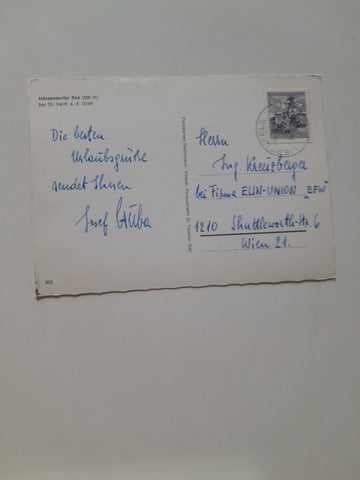 Hörzendorfer See (520 m)
bei St. Veith a. d. Glan
Die besten
Urlaubsgrüße
sendet Ihnen
Josef
Herrn
Ing. Kreuzberger
bei Firma ELIN-UNION "BFW"
1210 Shuttleworth-Str. 6
Wien 21.
952